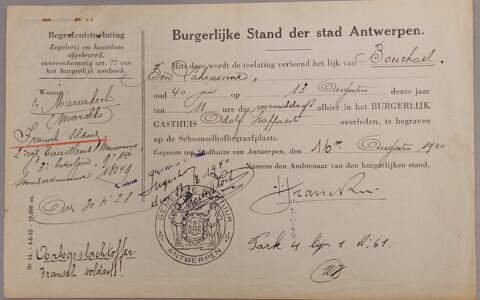 Begrafenistoelating
Zegelvrij en kosteloos
afgeleverd,
overeenkomstig art. 77 van
het burgerlijk wetboek.
Woont
te Marrakech
(Marokko)
Fransch soldaat
3e bataljon, 9e Cie
Stamboeknummer 28749
Oorlogsslachtoffer
Fransch soldaat
Nº 14. - 4-6-35 - 10,000 ex.
Burgerlijke Stand der stad Antwerpen.
Mits deze wordt de toelating verleend het lijk van Bouchael
Ben Lahoussine,
oud 40 jaar op 13 Augustus dezes jaar
ten 11 ure des voormiddags alhier in het BURGERLIJK
GASTHUIS Adolf Stappaerts overleden, te begraven
op de Schoonselhofbegraafplaats.
Gegeven ten Stadhuize van Antwerpen, 16en Augustus 1940
Namens den Ambtenaar van den burgerlijken stand,
GEMEENTEBESTUUR
ANTWERPEN
Park 4 lijn 1 Nº 61.